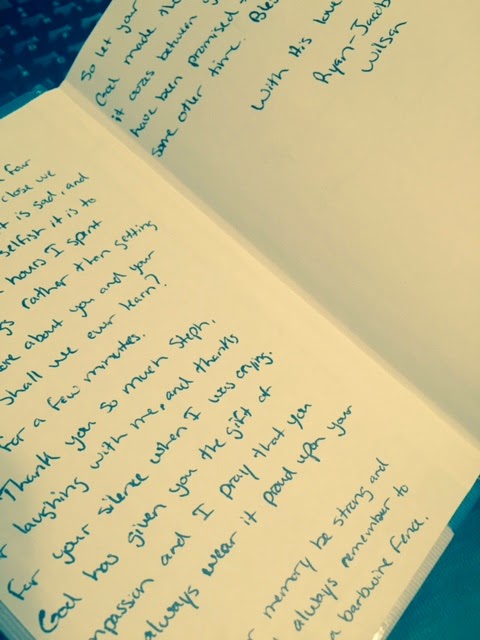 four
close we
t is sad, and
selfish it is to
hours I spent
gs rather than getting
ere about you and your
shall we ever learn?
For a few minutes.
Thank you so much Steph,
r laughing with me, and thanks
for your silence when I was crying.
God has given you the gift of
mpassion and I pray that you
always wear it proud upon your
r memory be strong and
always remember to
a barbwire fence.
So let your
God made the
it oozes between
have been promised
some other time. Bles
With His love
Ryan-Jacob
Wilson